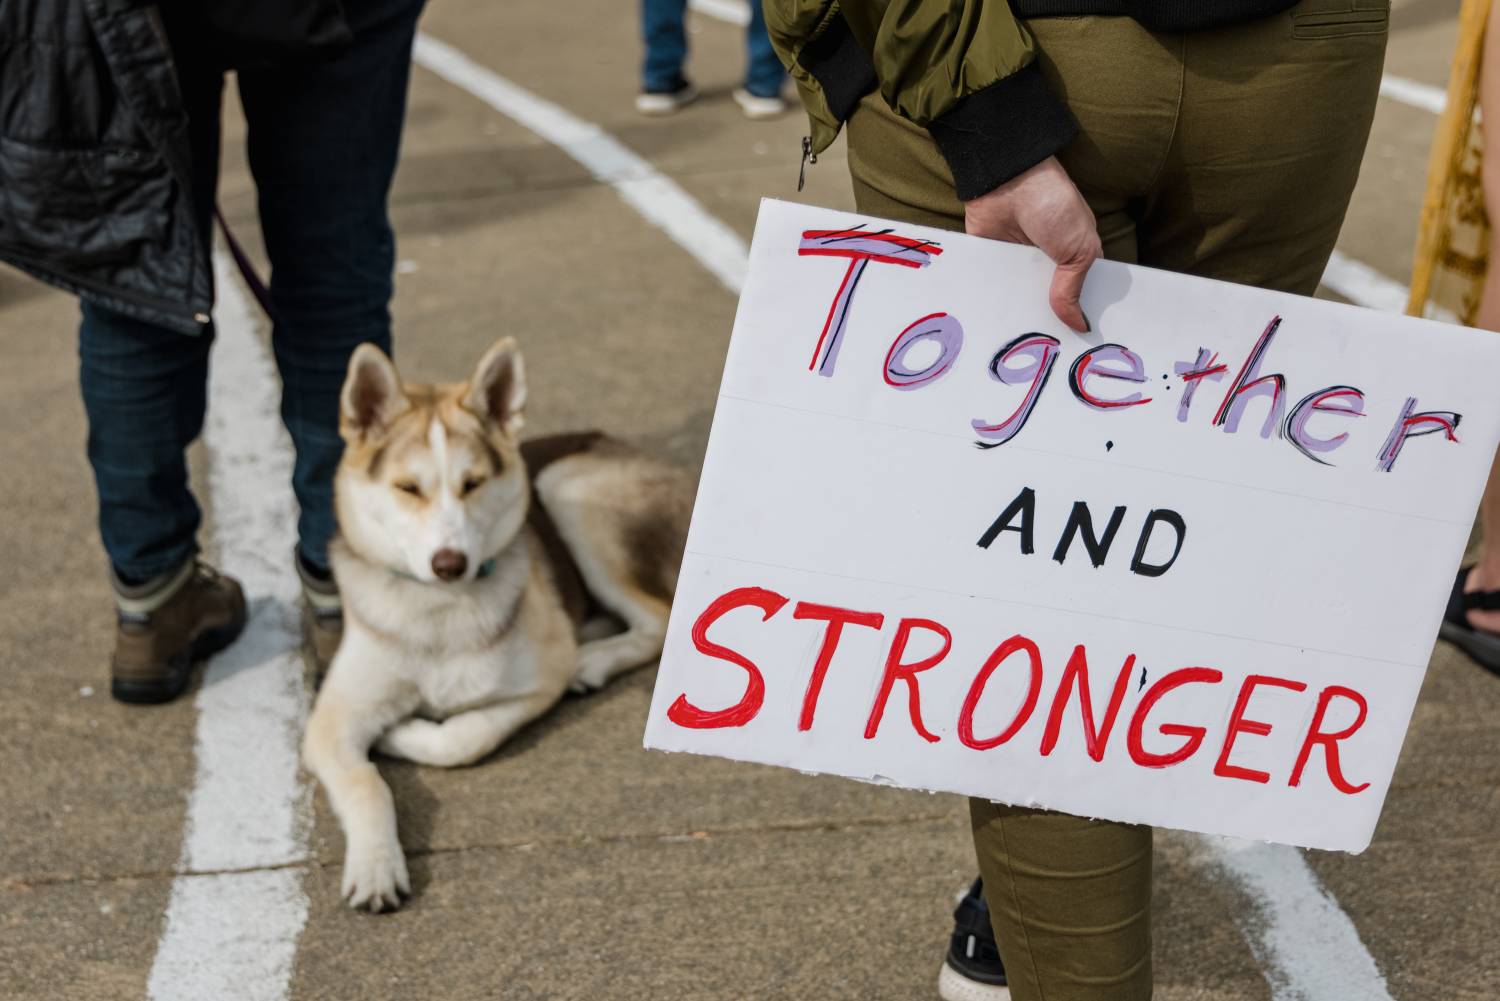 Together
AND
STRONGER